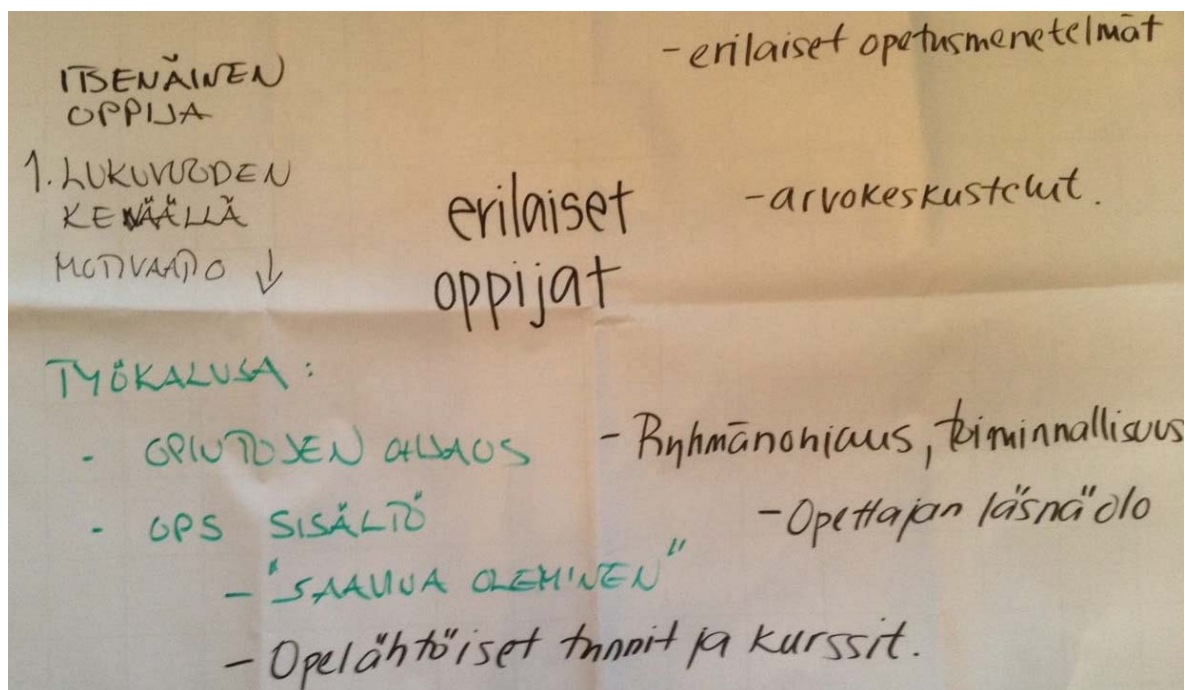 ITSENÄINEN
OPPIJA
1. LUKUVUODEN
KEVÄÄLLÄ
MOTIVAATIO ↓
erilaiset
oppijat
- erilaiset opetusmenetelmät
- arvokeskustelut.
TYÖKALUJA:
- OPINTOJEN OHJAUS
- OPS SISÄLTÖ
- "SAAVUVA OLEMINEN"
- Ryhmänohjaus, toiminnallisuus
- Opettajan läsnäolo
- Opelähtöiset tunnit ja kurssit.